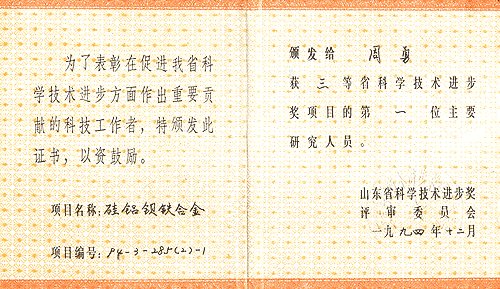 为了表彰在促进我省科
学技术进步方面作出重要贡
献的科技工作者，特颁发此
证书，以资鼓励。
项目名称：硅铝钡铁合金
项目编号：94-3-285(2)-1
颁发给 周勇
获三等省科学技术进步
奖项目的第一位主要
研究人员。
山东省科学技术进步奖
评审委员会
一九九四年十二月